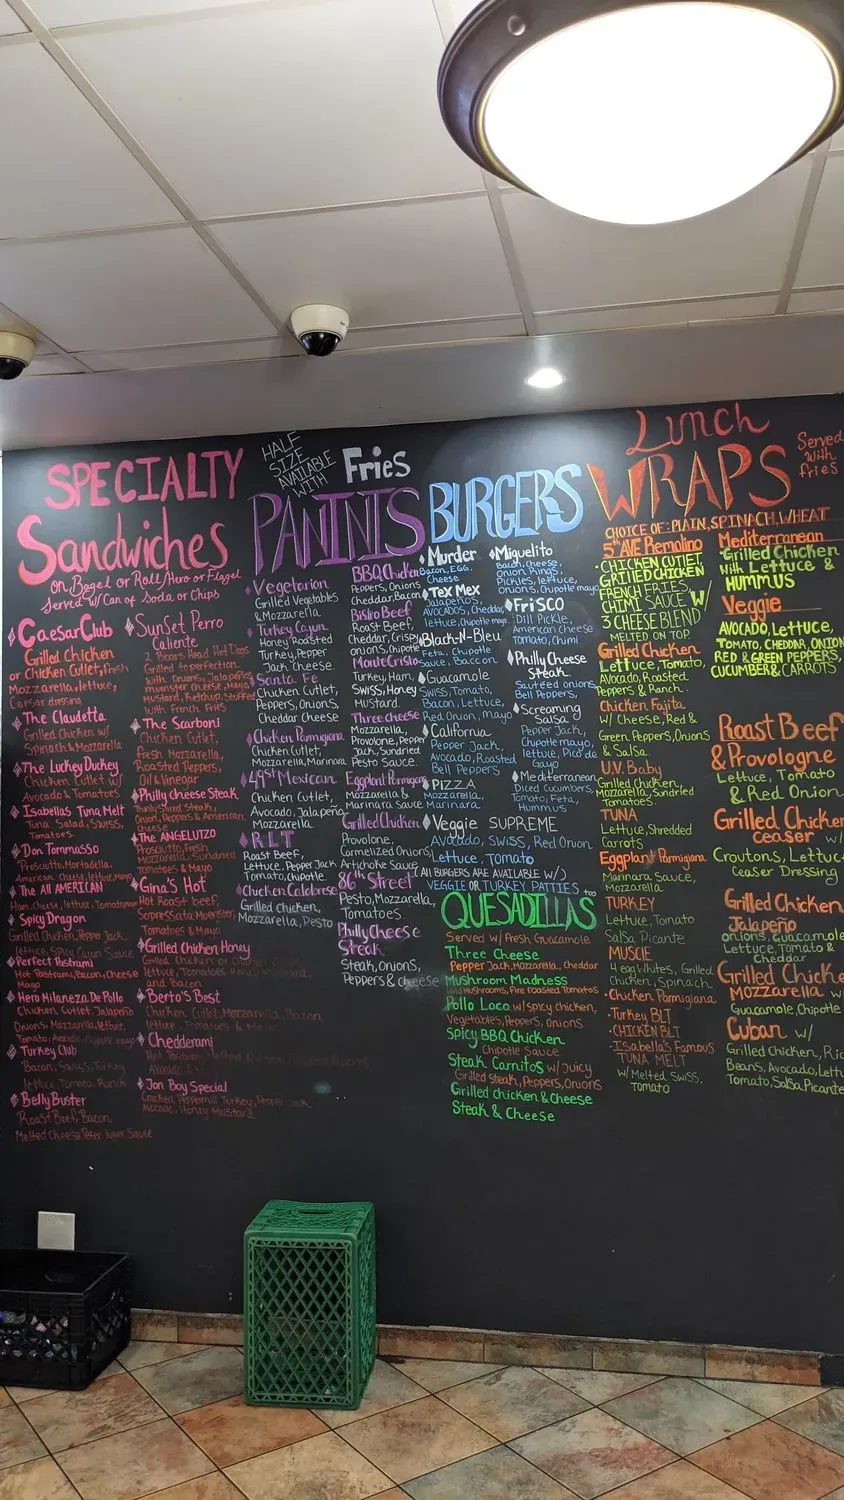 SPECIALTY
Sandwiches
on Bagel or Roll/Hero or Flagel
Served w/ Can of Soda or Chips
Caesar Club
Grilled Chicken
or Chicken Cutlet, Fresh
Mozzarella, lettuce,
Caesar dressing
The Claudetta
Grilled Chicken w/
Spinach & Mozzarella
The Luckey Duckey
Chicken Cutlet w/
Avocado & Tomatoes
Isabellas Tuna Melt
Tuna Salad, Swiss,
Tomatoes
Don Tommasso
Prosciutto, Mortadella,
American cheese, lettuce, Mayo
The All AMERICAN
Ham, Cheese, lettuce, Tomato, mayo
Spicy Dragon
Grilled Chicken, Pepper Jack,
lettuce, Spicy Cajun Sauce
Perfect Pastrami
Hot Pastrami, Bacon, Cheese
Mayo
Hero Milaneza De Pollo
Chicken Cutlet, Jalapeño
Onions, Mozzarella, lettuce,
Tomato, Avocado, chipotle mayo
Turkey Club
Bacon, Swiss, Turkey
lettuce, Tomato, Ranch
Belly Buster
Roast Beef, Bacon
Melted Cheese, Peter luger Sauce
SunSet Perro
Caliente
2 Boars Head Hot Dogs
Grilled to perfection
with Onions, Jalapeños
muenster cheese, Mayo
Mustard, Ketchup, Stuffed
with French Fries
The Scarboni
Chicken Cutlet,
Fresh Mozzarella,
Roasted Peppers,
Oil & Vinegar
Philly Cheese Steak
Thinly Sliced Steak,
Onion, Peppers & American
cheese
The ANGELUTZO
Prosciutto, Fresh
Mozzarella, Sundried
Tomatoes & Mayo
Gina's Hot
Hot Roast beef,
Sopressata Muenster,
Tomatoes & Mayo
Grilled Chicken Honey
lettuce, Tomatoes, Honey
and Bacon
Berto's Best
Chicken Cutlet, Mozzarella, Bacon,
lettuce, Tomatoes & Mayo
Chedderami
Hot Pastrami, Melted
Avocado &
Jon Boy Special
Cracked Peppermill Turkey, Pepper Jack
Avocado, Honey Mustard
HALF
SIZE
AVAILABLE
WITH
Fries
PANINIS
Vegetarian
Grilled Vegetables
& Mozzarella
Turkey Cajun
Honey Roasted
Turkey, Pepper
Jack Cheese
Santa Fe
Chicken Cutlet,
Peppers, Onions,
Cheddar Cheese
Chicken Parmigiana
Chicken Cutlet,
Mozzarella, Marinara
49st Mexican
Chicken Cutlet,
Avocado, Jalapeño
Mozzarella
R L T
Roast Beef,
Lettuce, Pepper Jack
Tomato, chipotle
Chicken Calabrese
Grilled Chicken,
Mozzarella, Pesto
BBQ Chicken
Peppers, Onions
Cheddar, Bacon
Bistro Beef
Roast Beef,
Cheddar, Crispy
onions, chipotle
Monte Cristo
Turkey, Ham,
Swiss, Honey
Mustard
Three cheese
Mozzarella,
Provolone, Pepper
Jack, Sundried
Pesto Sauce
Eggplant Parmigiana
Mozzarella &
Marinara Sauce
Grilled Chicken
Provolone,
Carmelized Onions
Artichoke Sauce
86th Street
Pesto, Mozzarella,
Tomatoes
Philly Cheese
Steak
Steak, Onions,
Peppers & cheese
BURGERS
Murder
Bacon, EGG,
Cheese
Tex Mex
Jalapeños,
Avocados, Cheddar,
lettuce, Chipotle
Black-N-Bleu
Feta, Chipotle
Sauce, Baccon
Guacamole
Swiss, Tomato,
Bacon, Lettuce,
Red Onion, mayo
California
Pepper Jack,
Avocado, Roasted
Bell Peppers
PIZZA
Mozzarella
Marinara
Veggie SUPREME
Avocado, Swiss, Red Onion
Lettuce, Tomato
Miguelito
Bacon, cheese,
onion Rings
Pickles, lettuce,
onions, Chipotle mayo
FriSCO
Dill Pickle,
American cheese
Tomato, Chimi
Philly Cheese
Steak
Sauteed onions
Bell Peppers,
Screaming
Salsa
Pepper Jack,
Chipotle mayo,
lettuce, Pico de
Gayo
Mediterranean
Diced Cucumbers,
Tomato, Feta,
Hummus
(ALL BURGERS ARE AVAILABLE w/)
VEGGIE OR TURKEY PATTIES too
QUESADILLAS
Served w/ Fresh Guacamole
Three Cheese
Pepper Jack, Mozzarella, Cheddar
Mushroom Madness
Mushrooms, Fire roasted Tomatos
Pollo Loco w/ spicy chicken,
Vegetables, Peppers, Onions
Spicy BBQ Chicken
Chipotle Sauce
Steak Carnitos w/ Juicy
Grilled steak, Peppers, Onions
Grilled chicken & Cheese
Steak & Cheese
Lunch
WRAPS
Served
with
fries
CHOICE OF: PLAIN, SPINACH, WHEAT
5th AVE Remolino
CHICKEN CUTLET,
GRILLED CHICKEN
FRENCH FRIES,
CHIMI SAUCE w/
3 CHEESE BLEND
MELTED ON TOP
Grilled Chicken
Lettuce, Tomato,
Avocado, Roasted
Peppers & Ranch
Chicken Fajita
w/ Cheese, Red &
Green Peppers, Onions
& Salsa
U.V. Baby
Grilled Chicken,
Mozzarella, Sundried
Tomatoes
TUNA
Lettuce, Shredded
Carrots
Eggplant Parmigiana
Marinara Sauce,
Mozzarella
TURKEY
Lettuce, Tomato
Salsa Picante
MUSCIE
4 egg whites, Grilled
Chicken, Spinach
Chicken Parmigiana
Turkey BLT
CHICKEN BLT
Isabella's Famous
TUNA MELT
w/ Melted Swiss,
Tomato
Mediterranean
Grilled Chicken
with Lettuce &
HUMMUS
Veggie
AVOCADO, Lettuce,
TOMATO, CHEDDAR, ONION
RED & GREEN PEPPERS,
CUCUMBER & CARROTS
Roast Beef
& Provologne
Lettuce, Tomato
& Red Onion
Grilled Chicken
ceaser w/
Croutons, Lettuce
Ceaser Dressing
Grilled Chicken
Jalapeño
onions, Guacamole
Lettuce, Tomato &
Cheddar
Grilled Chicke
MOZZARELLA w/
Guacamole, Chipotle
Cuban w/
Grilled Chicken, Ric
Beans, Avocado, Lett
Tomato, Salsa Picante